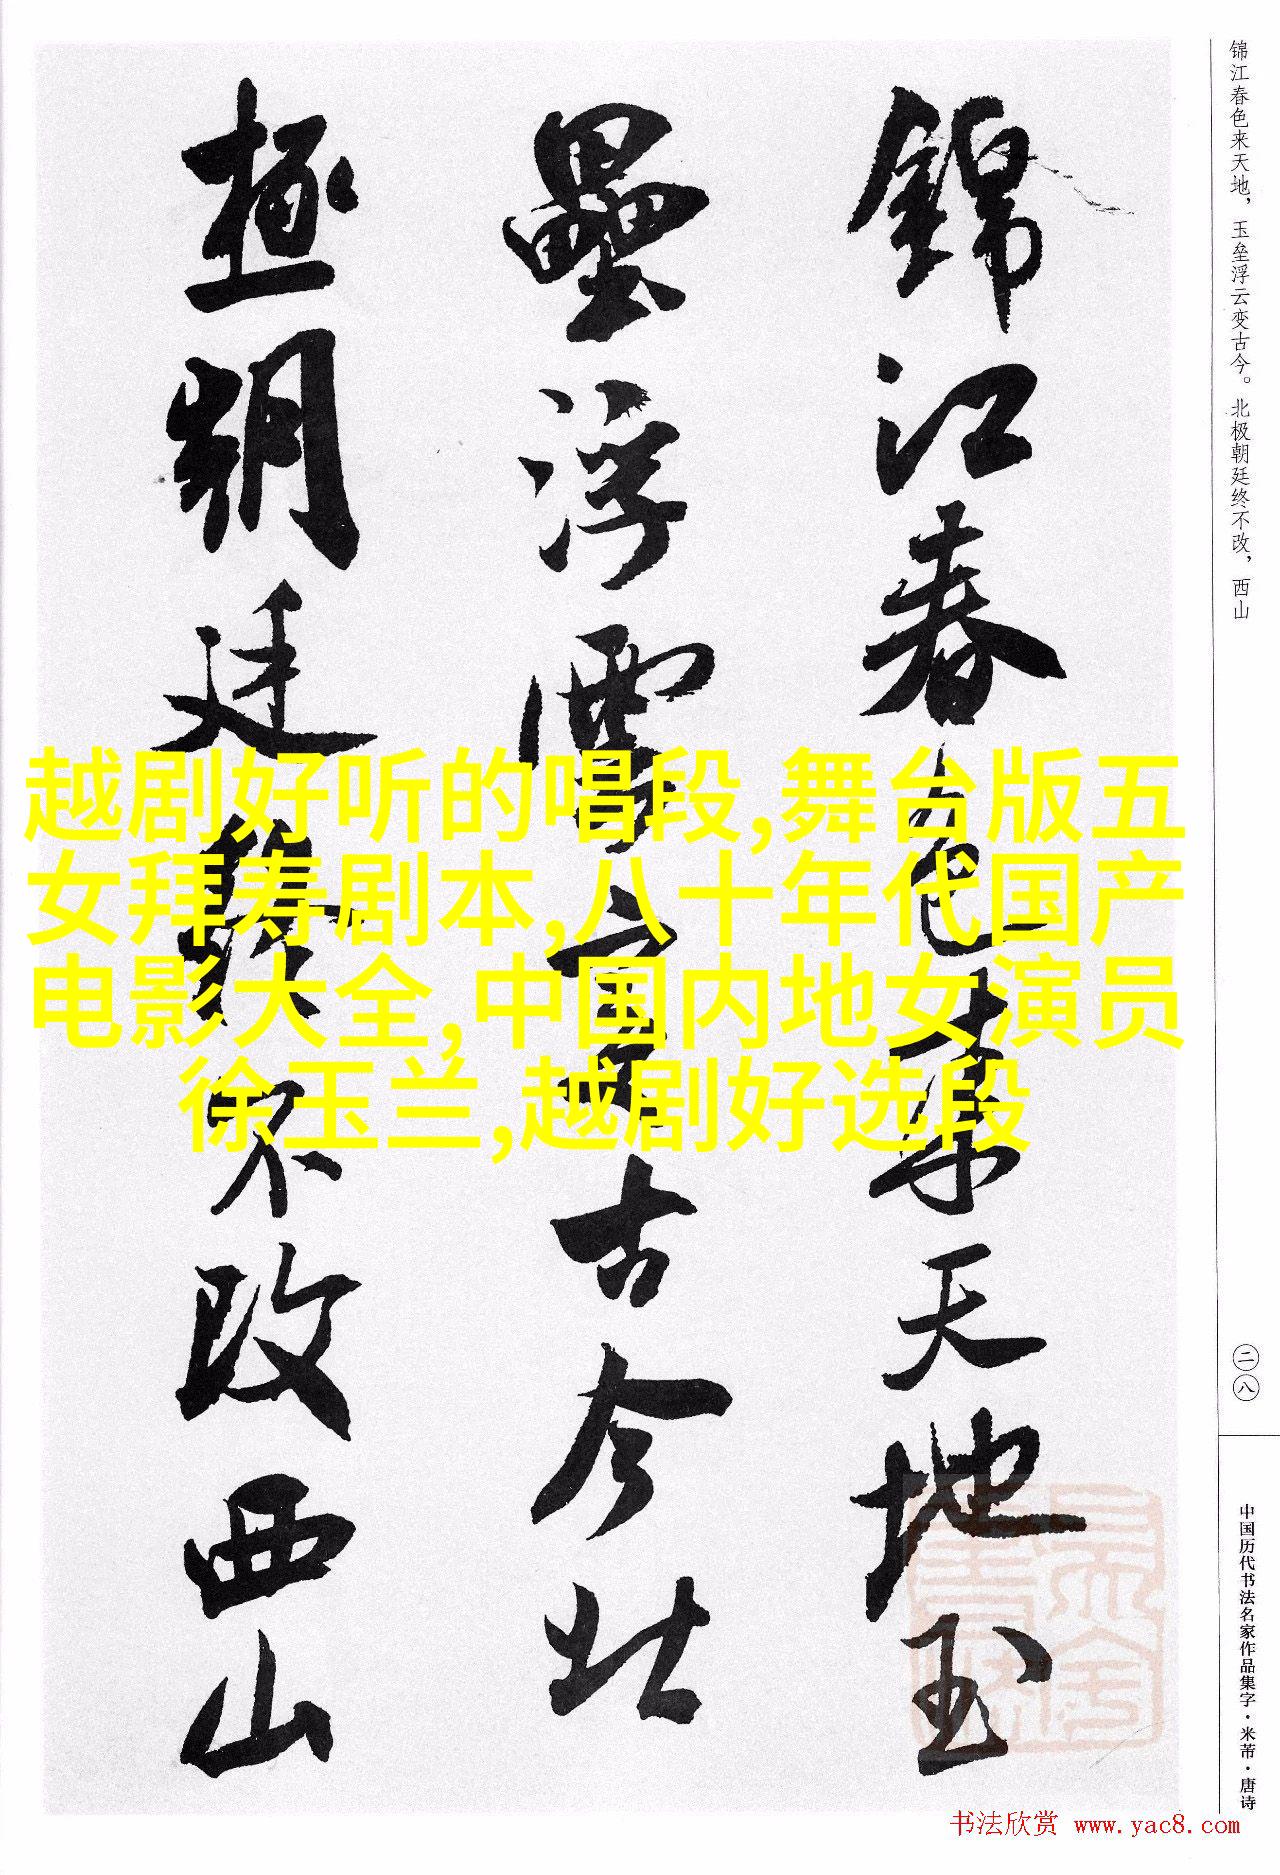 锦江春色来天地，玉垒浮云变古今。北极朝廷终不改，西山
錦江春色来天地玉
壘浮雲变古今北
極朝廷終不改西山
越剧好听的唱段,舞台版五
女拜寿剧本,八十年代国产
电影大全,中国内地女演员
徐玉兰,越剧好选段
二八
中国历代书法名家作品集字·米芾·唐诗
书法欣赏 www.yac8.com